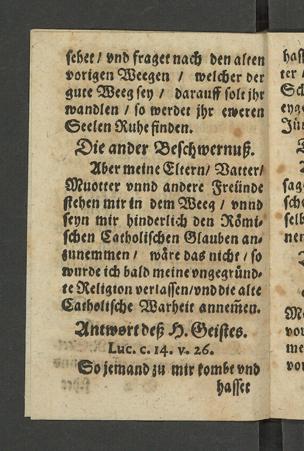 sehet / vnd fraget nach den alten
vorigen Weegen / welcher der
gute Weeg sey / darauff solt jhr
wandlen / so werdet jhr eweren
Seelen Ruhe finden.
Die ander Beschwernuß.
Aber meine Eltern / Vatter /
Muotter vnnd andere Freünde
stehen mir in dem Weeg / vnnd
seyn mir hinderlich den Römi-
schen Catholischen Glauben an-
zunemmen / wäre das nicht / so
wurde ich bald meine vngegründ-
te Religion verlassen / vnd die alte
Catholische Warheit annem̃en.
Antwort deß H. Geistes.
Luc. c. 14. v. 26.
So jemand zu mir kombt vnd
hasset